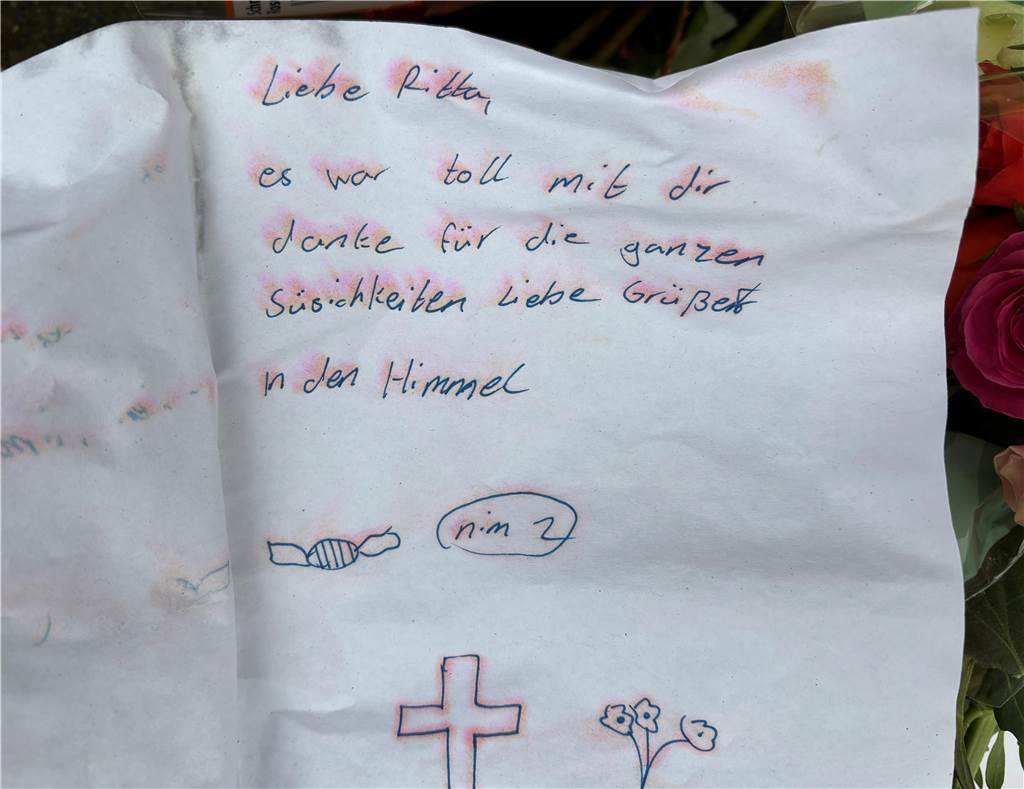 Liebe Ritta,
es war toll mit dir
danke für die ganzen
Süsichkeiten Liebe Grüße
in den Himmel
nim 2